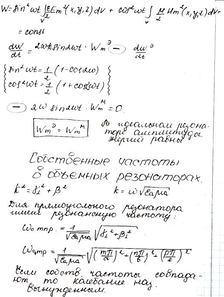 W = sin²ωt ∫ ε/2 Em²(x,y,z) dV + cos²ωt ∫ μ/2 Hm²(x,y,z) dV =
= const
dW/dt = 2ω sin2ωt · Wm^Э −
sin²ωt = 1/2 (1 - cos2ω)
cos²ωt = 1/2 (1 + cos2ωt)
− 2ω sin2ωt · Wm = 0
Wm^Э = Wm^М
В идеальном резона-
торе амплитуды
энергий равны
Собственные частоты
в объемных резонаторах.
k² = β²
k = ω√εaμa
Для прямоугольного резонатора
имеет резонансную частоту:
ω0 пр. = 1/√εaμa √
ω0тпр = 1/√εaμa √(mπ/a)² - (nπ/b)² - (pπ/l)²
Если собств. частоты совпада-
ют, то колебание наз.
вынужденным.